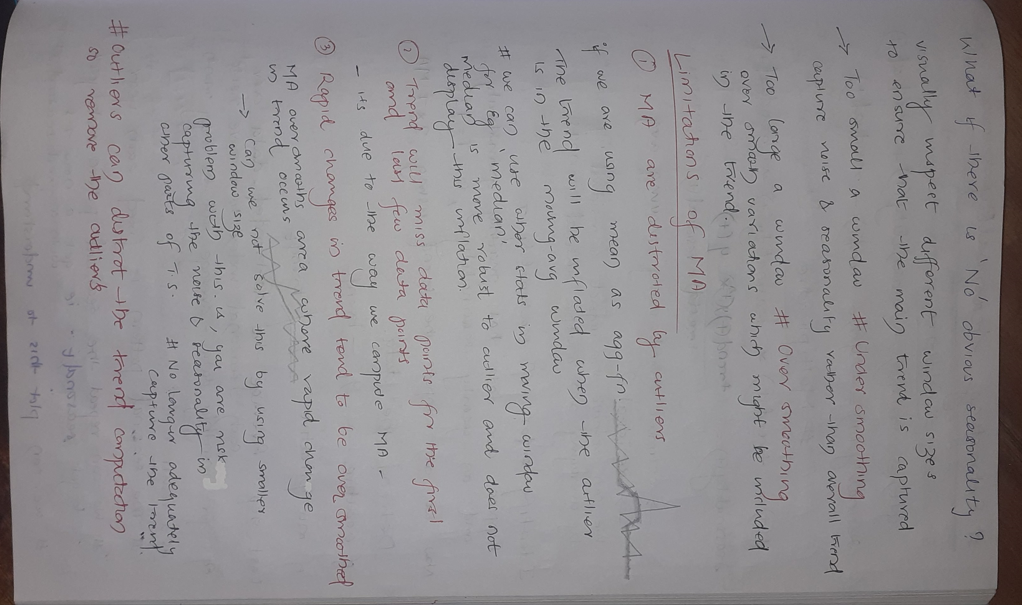 What if there is 'No' obvious seasonality?
visually inspect different window sizes
to ensure that the main trend is captured
→ Too small a window # Under smoothing
capture noise & seasonality rather than overall trend
→ Too long a window # Over smoothing
over smooth variations which might be included
in the trend.
Limitations of MA
① MA are distroted by outliers
if we are using mean as agg-fn.
The trend will be inflated when the outlier
is in the moving avg window
# we can use other stats in moving window
for Eg 'median'
median is more robust to outlier and does not
display this inflation.
② Trend will miss data points for the first
and last few data points
- its due to the way we compute MA -
③ Rapid changes in trend tend to be over smoothed
MA oversmooths area where rapid change
in trend occurs
→ Can we not solve this by using smaller
window size
problem with this is, you are risking
capturing the noise & seasonality in
other parts of T.S. # No longer adequately
capture the trend
# Outliers can distrot the trend computation
so remove the outliers